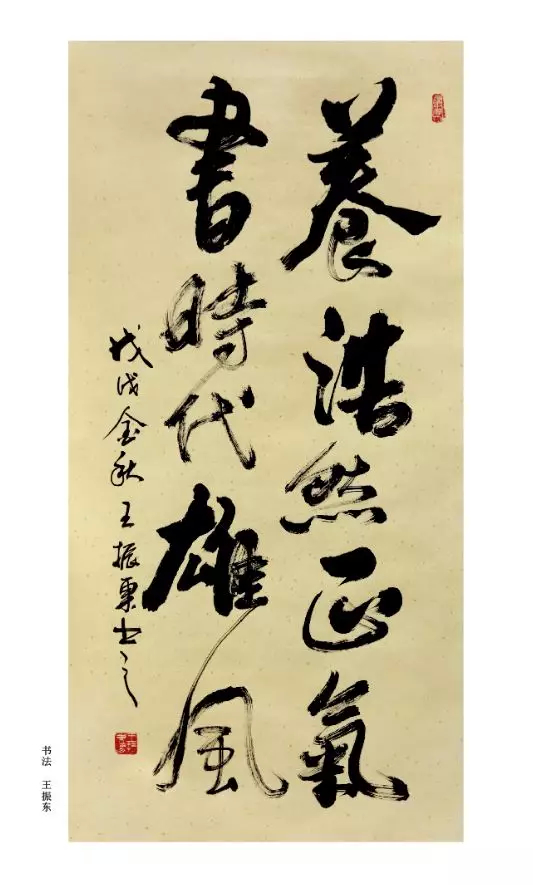 養浩然正氣
書時代雄風
戊戌金秋王振東书之
书法 王振东